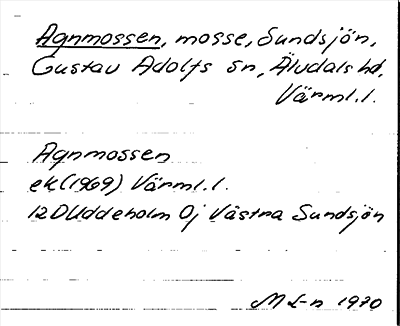 Agnmossen, mosse, Sundsjön,
Gustav Adolfs sn, Älvdals hd,
Värml.l.
Agnmossen
ek(1969) Värml.l.
12DUddeholm 0j Västra Sundsjön
M L-n 1970